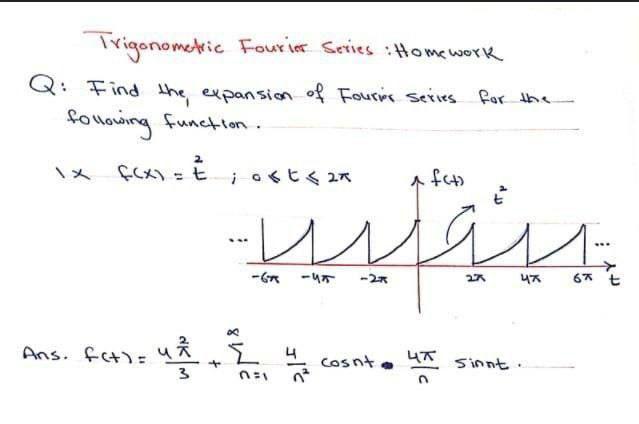 Trigonometric Fourier Series : Homework
Q: Find the expansion of Fourier series for the
following function.
1x f(x) = t² ; 0 ≤ t ≤ 2π
f(t)
t²
... ...
-6π -4π -2π 2π 4π 6π t
Ans. f(t) = 4π²/3 + ∞Σn=1 4/n² cosnt • 4π/n sinnt.